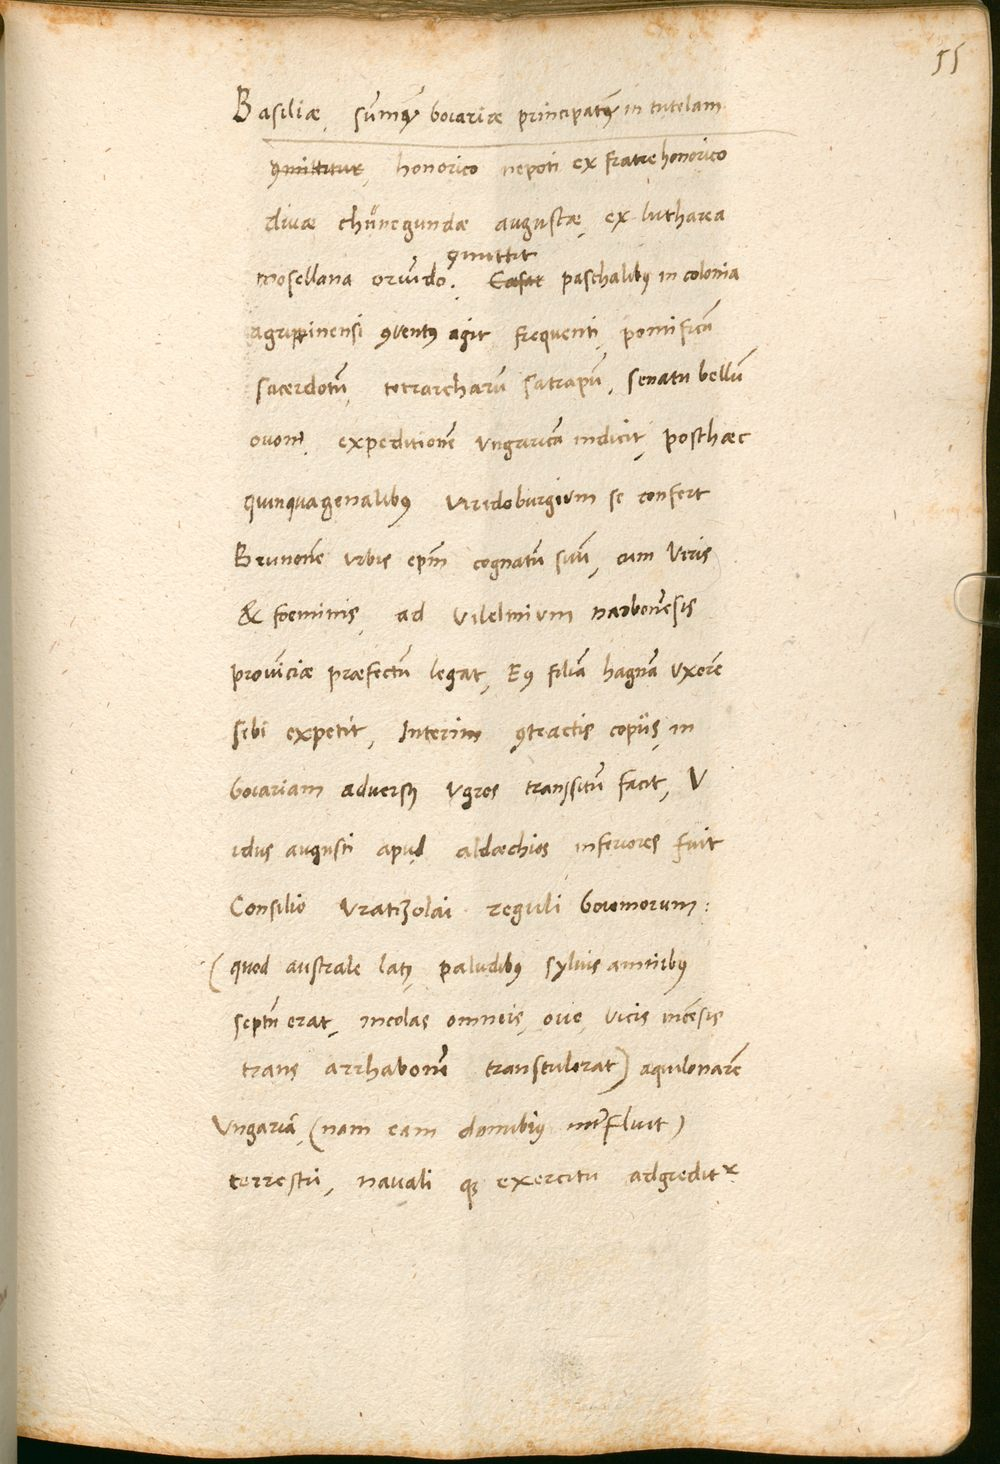 55
Basiliæ, sũmꝰ boiariæ principatꝰ in tutelam
ꝯmittitur, honorico nepoti ex fratre honorico
divæ chůnegundæ augustæ, ex lutharea
ꝯmittit
mosellana oriũdo. Cæsar paschalibꝰ in colonia
agrippinensi ꝯventꝰ agit frequenti, pontificũ
sacerdotũ, tetrarcharũ satrapũ, senatu bellũ
expeditionẽ ungaricã indicit, posthæc
quinquagenalibꝰ viridoburgium se confert
Brunonẽ urbis epm̃ cognatũ suũ, cum viris
& foeminis, ad vilelmium narbonẽsis
provĩciæ præfectũ legat, Eꝰ filiã hagnã uxorẽ
sibi expetit, Interim ꝯtractis copiis, in
boiariam adversꝰ ugros transsitũ facit, V
idus augusti apud aldæchios inferiores fuit
Consilio Uratizolai reguli boiemorum:
(quod australe latꝰ paludibꝰ sylvis amnibꝰ
septũ erat, incolas omneis, vicis incẽsis
trans arrhabonẽ transtulerat) aquilonarẽ
Ungariã, (nam eam danubiꝰ interfluit)
terrestri, navali qꝫ exercitu adgreditr